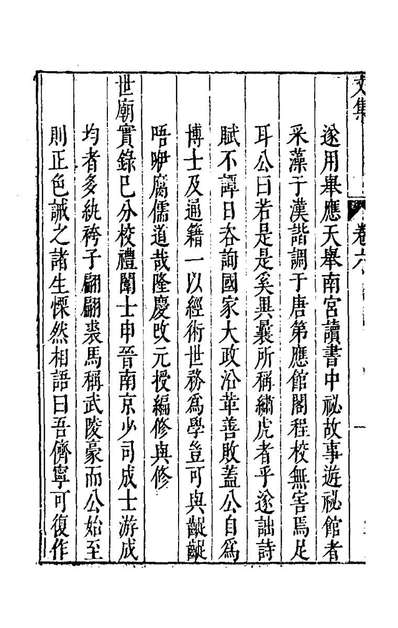 文集
卷六
遂用舉應天舉南宮讀書中祕故事遊祕館者
采藻于漢諧調于唐第應館閣程校無害焉足
耳公曰若是是奚異曩所稱繡虎者乎遂詘詩
賦不譚日咨詢國家大政沿革善敗蓋公自為
博士及通籍一以經術世務為學豈可與齪齪
唔咿腐儒道哉隆慶改元授編修與修
世廟實錄已分校禮闈士申晉南京少司成士游成
均者多紈袴子翩翩裘馬稱武陵豪而公始至
則正色誡之諸生慄然相語曰吾儕寧可復作